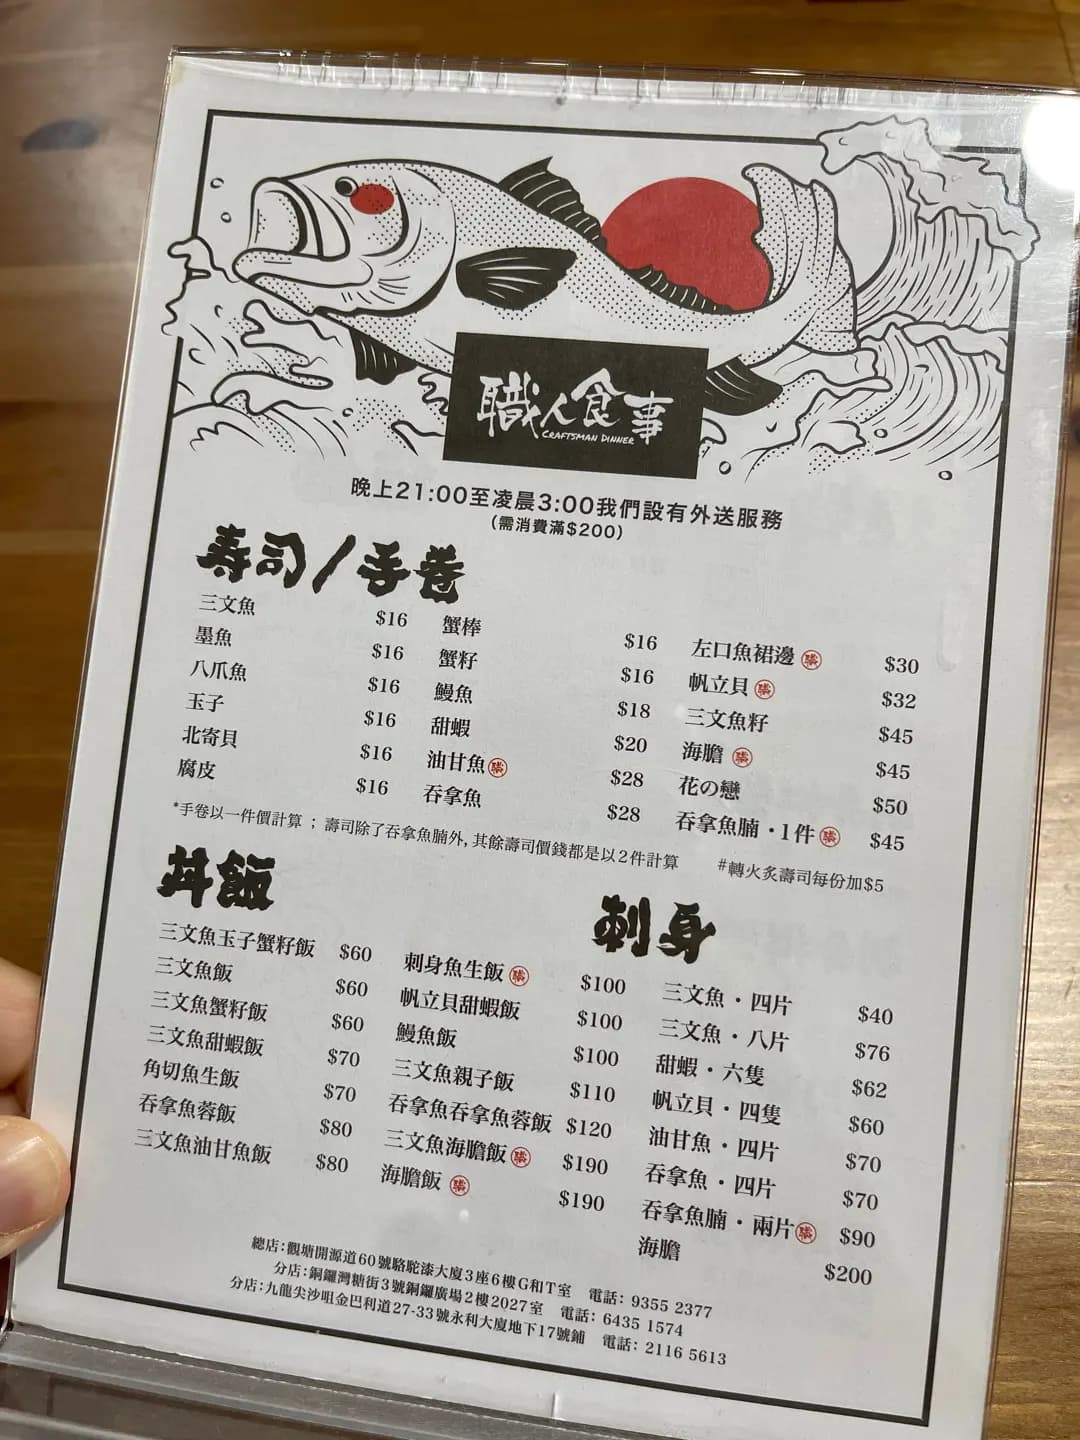 職人食事
CRAFTSMAN DINNER
晚上21:00至凌晨3:00我們設有外送服務
(需消費滿$200)
寿司/手卷
三文魚 $16
墨魚 $16
八爪魚 $16
玉子 $16
北寄貝 $16
腐皮 $16
蟹棒 $16
蟹籽 $16
鰻魚 $18
甜蝦 $20
油甘魚 $28
吞拿魚 $28
左口魚裙邊 $30
帆立貝 $32
三文魚籽 $45
海膽 $45
花の戀 $50
吞拿魚腩・1件 $45
*手卷以一件價計算；壽司除了吞拿魚腩外, 其餘壽司價錢都是以2件計算
#轉火炙壽司每份加$5
丼飯
三文魚玉子蟹籽飯 $60
三文魚飯 $60
三文魚蟹籽飯 $60
三文魚甜蝦飯 $70
角切魚生飯 $70
吞拿魚蓉飯 $80
三文魚油甘魚飯 $80
刺身魚生飯 $100
帆立貝甜蝦飯 $100
鰻魚飯 $100
三文魚親子飯 $110
吞拿魚吞拿魚蓉飯 $120
三文魚海膽飯 $190
海膽飯 $190
刺身
三文魚・四片 $40
三文魚・八片 $76
甜蝦・六隻 $62
帆立貝・四隻 $60
油甘魚・四片 $70
吞拿魚・四片 $70
吞拿魚腩・兩片 $90
海膽 $200
總店：觀塘開源道60號駱駝漆大廈3座6樓G和T室 電話：9355 2377
分店：銅鑼灣糖街3號銅鑼廣場2樓2027室 電話：6435 1574
分店：九龍尖沙咀金巴利道27-33號永利大廈地下17號鋪 電話：2116 5613